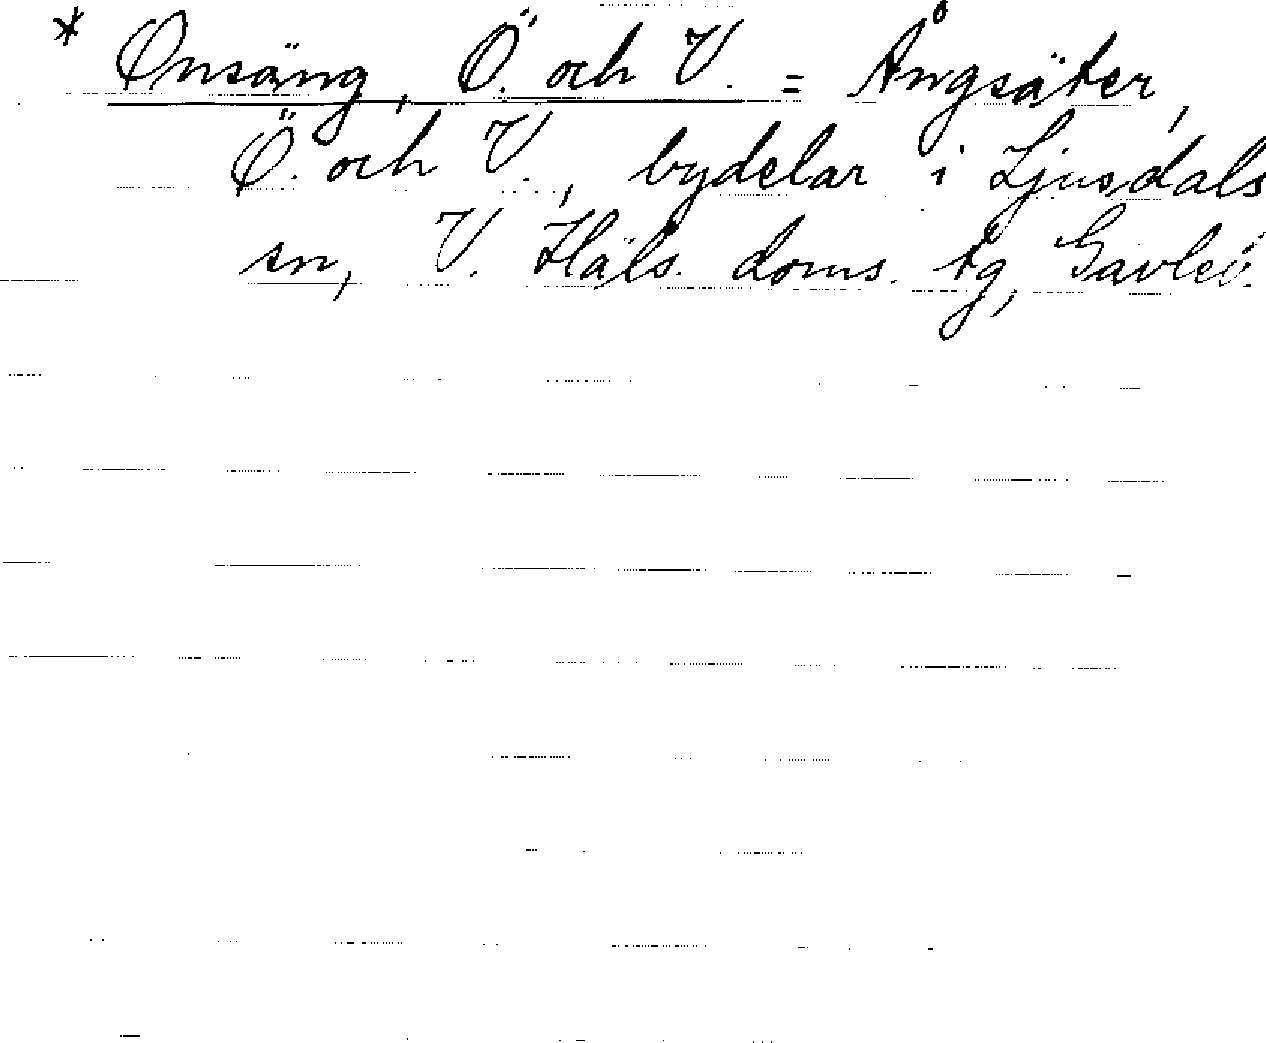 * Onsäng, Ö. och V. = Ångsäter,
Ö. och V., bydelar i Ljusdals
sn, V. Häls. doms. tg, Gävleb.